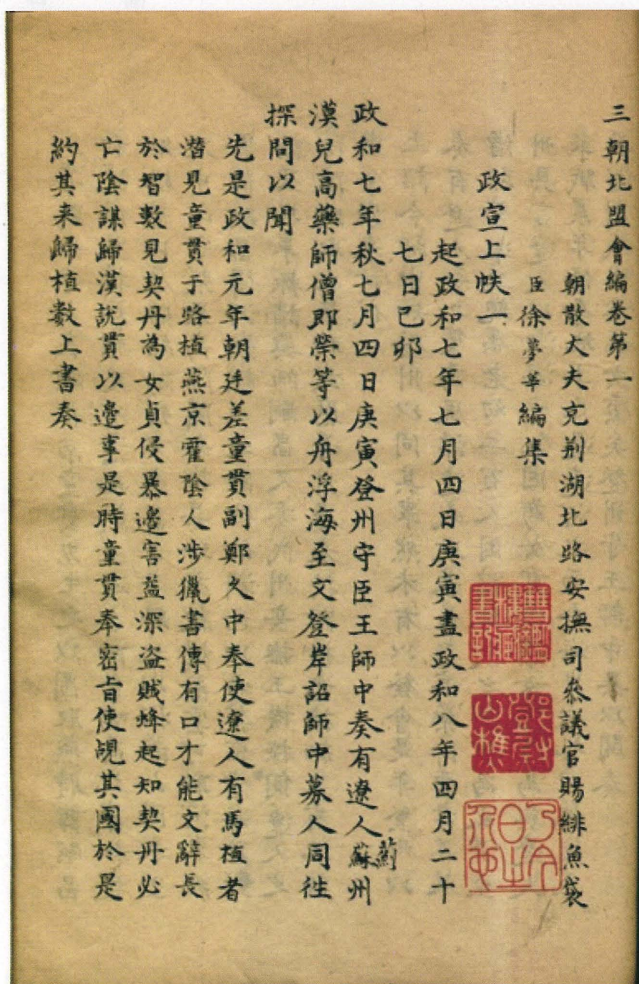 三朝北盟會編卷第一
朝散大夫充荆湖北路安撫司叅議官賜緋魚袋
臣徐夢莘編集
政宣上帙一
起政和七年七月四日庚寅盡政和八年四月二十
七日己卯
政和七年秋七月四日庚寅登州守臣王師中奏有遼人蘇州
薊
漢兒高藥師僧即榮等以舟浮海至文登岸詔師中募人同往
探問以聞
先是政和元年朝廷差童貫副鄭久中奉使遼人有馬植者
潛見童貫于路植燕京霍陰人涉獵書傳有口才能文辭長
於智數見契丹為女貞侵暴邉害益深盗賊蜂起知契丹必
亡陰謀歸漢說貫以邉事是時童貫奉密旨使覘其國於是
約其来歸植數上書奏
雙鑑樓